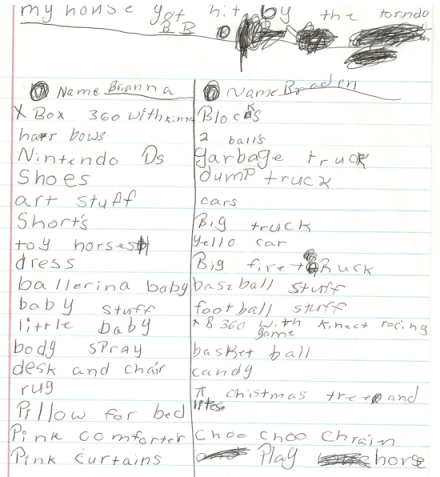 my house got hit by the torndo
B B
Name Brianna
X Box 360 with kinne
hair bows
Nintendo Ds
Shoes
art stuff
Short's
toy horses
dress
ballerina baby
baby stuff
little baby
body sPray
desk and chair
rug
Pillow for bed
Pink comforter
Pink curtains
Name Braden
Blocks
2 balls
garbage truck
dump truck
cars
Big truck
yello car
Big fire tRuck
baseball stuff
football stuff
x B 360 with kinect racing
game
basket ball
candy
chistmas tree and
Choo choo chrain
Play horse